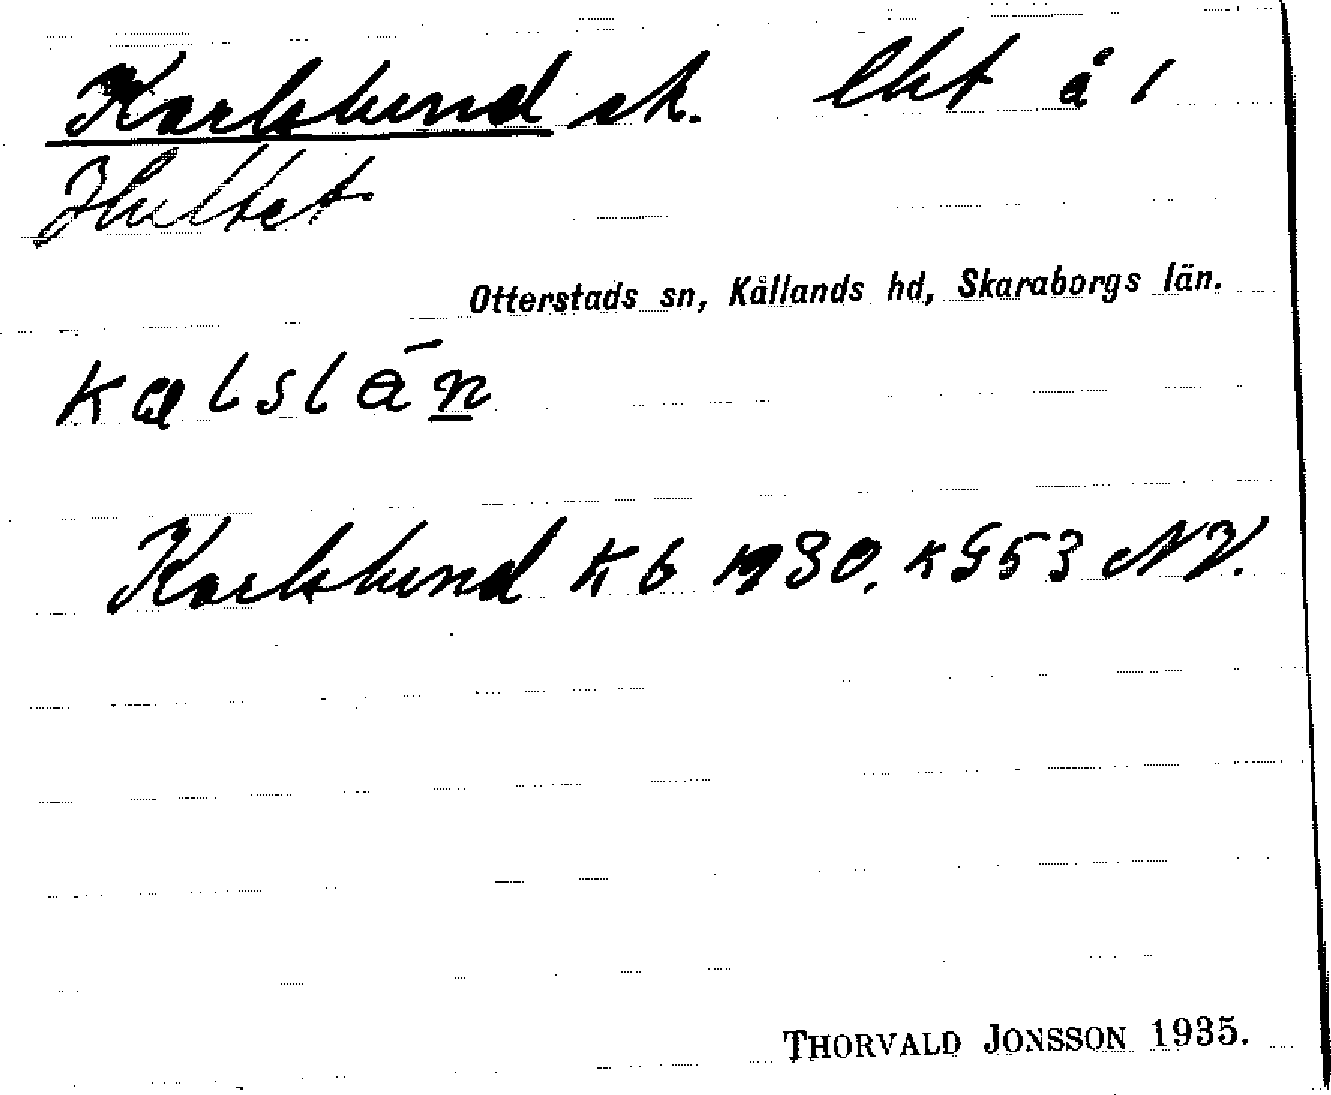 Karlslund sk. lht å 1
Hultet
Otterstads sn, Kållands hd, Skaraborgs län.
kalslān
Karlslund Kb 1930, KG53 NV.
THORVALD JONSSON 1935.